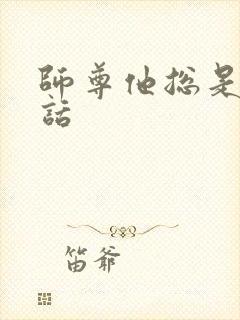 師尊他總是
話
笛爺